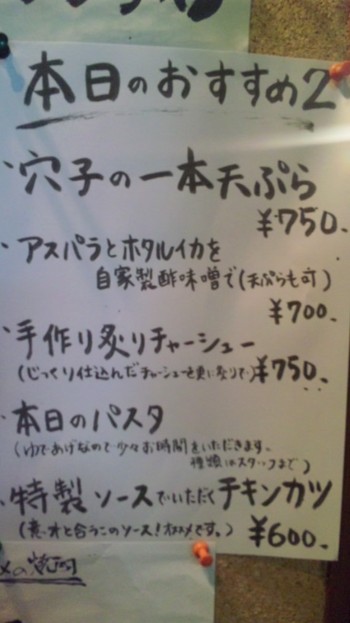 本日のおすすめ2
・穴子の一本天ぷら
¥750.
・アスパラとホタルイカを
自家製酢味噌で(天ぷらも可)
¥700.
・手作り炙りチャーシュー
(じっくり仕込んだチャーシューを更に炙りで)¥750.
・本日のパスタ
(ゆであげなので少々お時間をいただきます。
種類はスタッフまで)
・特製ソースでいただくチキンカツ
(意・オと合うこのソース!オススメです。) ¥600.